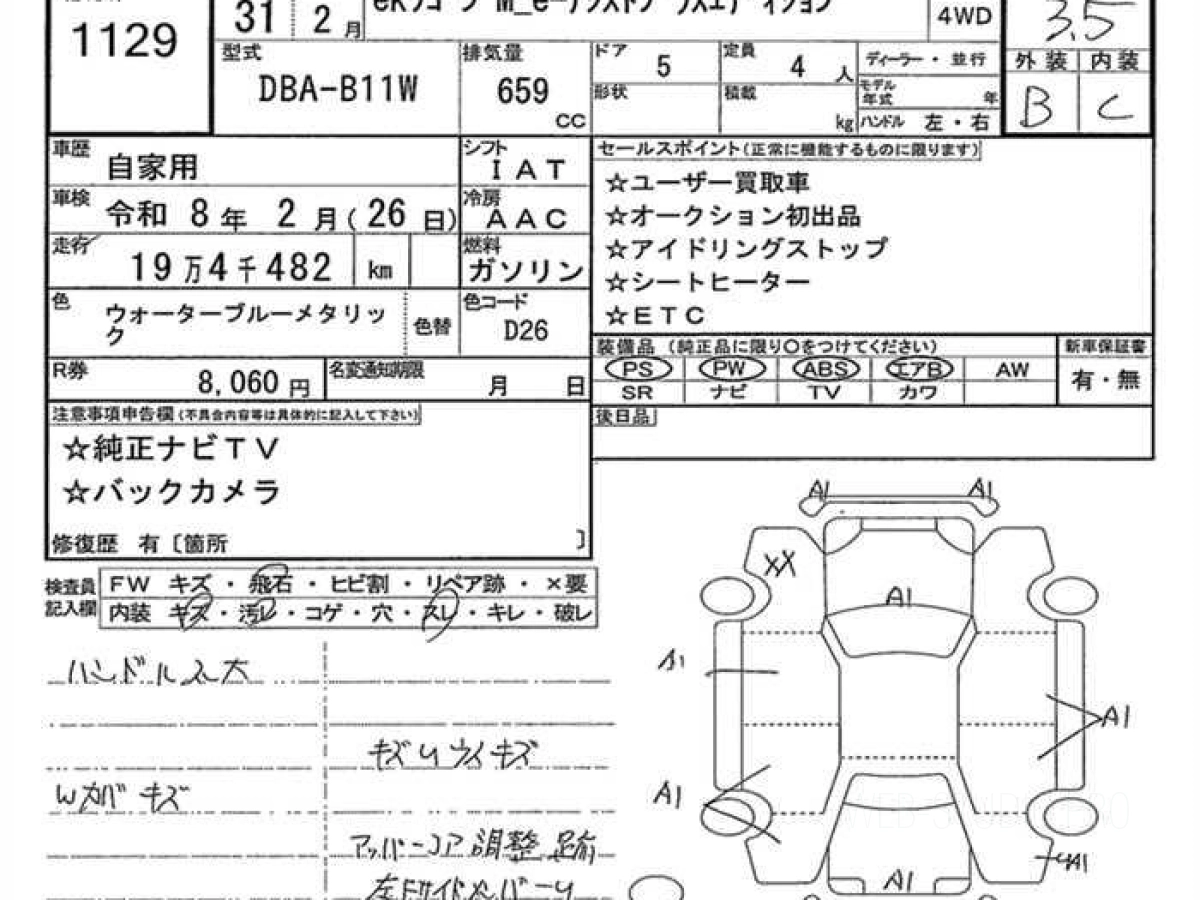 1129
31 2月
4WD
3.5
型式 DBA-B11W
排気量 659 cc
ドア 5
定員 4 人
形状
積載 kg
ディーラー・並行
モデル年式 年
ハンドル 左・右
外装 内装
B C
車歴 自家用
シフト IAT
車検 令和 8年 2月(26日)
冷房 AAC
走行 19万4千482 km
燃料 ガソリン
色 ウォーターブルーメタリック
色替
色コード D26
R券 8,060円
名変通知期限 月 日
セールスポイント(正常に機能するものに限ります)
☆ユーザー買取車
☆オークション初出品
☆アイドリングストップ
☆シートヒーター
☆ETC
装備品 (純正品に限り〇をつけてください)
新車保証書
PS PW ABS エアB AW
有・無
SR ナビ TV カワ
後日品
注意事項申告欄(不具合内容等は具体的に記入して下さい)
☆純正ナビTV
☆バックカメラ
修復歴 有〔箇所 〕
検査員記入欄
FW キズ・飛石・ヒビ割・リペア跡・×要
内装 キズ・汚レ・コゲ・穴・スレ・キレ・破レ
ハンドルスレ大
キズUウイキズ
Wカバキズ
アッパーコア調整跡
A1 A1
XX
A1
A1
A1
A1
A1